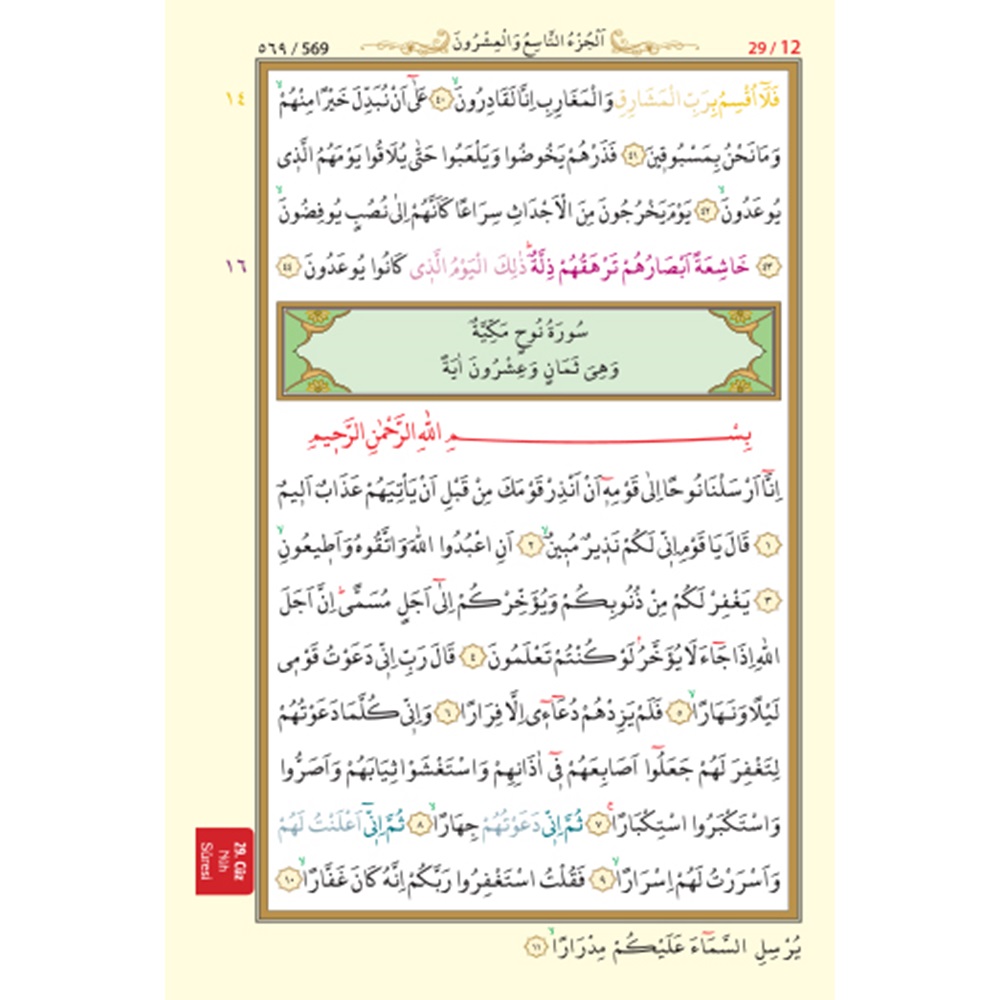 ٥٦٩ / 569
اَلْجُزْءُ التَّاسِعُ وَالْعِشْرُونَ
29 / 12
١٤
فَلَٓا اُقْسِمُ بِرَبِّ الْمَشَارِقِ وَالْمَغَارِبِ اِنَّا لَقَادِرُونَۙ ٤٠ عَلٰٓى اَنْ نُبَدِّلَ خَيْرًا مِنْهُمْۙ
وَمَا نَحْنُ بِمَسْبُوق۪ينَ ٤١ فَذَرْهُمْ يَخُوضُوا وَيَلْعَبُوا حَتّٰى يُلَاقُوا يَوْمَهُمُ الَّذ۪ي
يُوعَدُونَۙ ٤٢ يَوْمَ يَخْرُجُونَ مِنَ الْاَجْدَاثِ سِرَاعًا كَاَنَّهُمْ اِلٰى نُصُبٍ يُوفِضُونَۙ
١٦
٤٣ خَاشِعَةً اَبْصَارُهُمْ تَرْهَقُهُمْ ذِلَّةٌۜ ذٰلِكَ الْيَوْمُ الَّذ۪ي كَانُوا يُوعَدُونَ ٤٤
سُورَةُ نُوحٍ مَكِّيَّةٌ
وَهِيَ ثَمَانٍ وَعِشْرُونَ اٰيَةً
بِسْمِ اللّٰهِ الرَّحْمٰنِ الرَّح۪يمِ
اِنَّٓا اَرْسَلْنَا نُوحًا اِلٰى قَوْمِه۪ٓ اَنْ اَنْذِرْ قَوْمَكَ مِنْ قَبْلِ اَنْ يَأْتِيَهُمْ عَذَابٌ اَل۪يمٌ
١ قَالَ يَا قَوْمِ اِنّ۪ي لَكُمْ نَذ۪يرٌ مُب۪ينٌۙ ٢ اَنِ اعْبُدُوا اللّٰهَ وَاتَّقُوهُ وَاَط۪يعُونِۙ
٣ يَغْفِرْ لَكُمْ مِنْ ذُنُوبِكُمْ وَيُؤَخِّرْكُمْ اِلٰٓى اَجَلٍ مُسَمًّىۜ اِنَّ اَجَلَ
اللّٰهِ اِذَا جَٓاءَ لَا يُؤَخَّرُۢ لَوْ كُنْتُمْ تَعْلَمُونَ ٤ قَالَ رَبِّ اِنّ۪ي دَعَوْتُ قَوْم۪ي
لَيْلًا وَنَهَارًاۙ ٥ فَلَمْ يَزِدْهُمْ دُعَٓاء۪ٓي اِلَّا فِرَارًا ٦ وَاِنّ۪ي كُلَّمَا دَعَوْتُهُمْ
لِتَغْفِرَ لَهُمْ جَعَلُٓوا اَصَابِعَهُمْ ف۪ٓي اٰذَانِهِمْ وَاسْتَغْشَوْا ثِيَابَهُمْ وَاَصَرُّوا
وَاسْتَكْبَرُوا اسْتِكْبَارًاۚ ٧ ثُمَّ اِنّ۪ي دَعَوْتُهُمْ جِهَارًاۙ ٨ ثُمَّ اِنّ۪ٓي اَعْلَنْتُ لَهُمْ
وَاَسْرَرْتُ لَهُمْ اِسْرَارًاۙ ٩ فَقُلْتُ اسْتَغْفِرُوا رَبَّكُمْ اِنَّهُ كَانَ غَفَّارًاۙ ١٠
يُرْسِلِ السَّمَٓاءَ عَلَيْكُمْ مِدْرَارًاۙ ١١
29. Cüz
Nûh
Sûresi